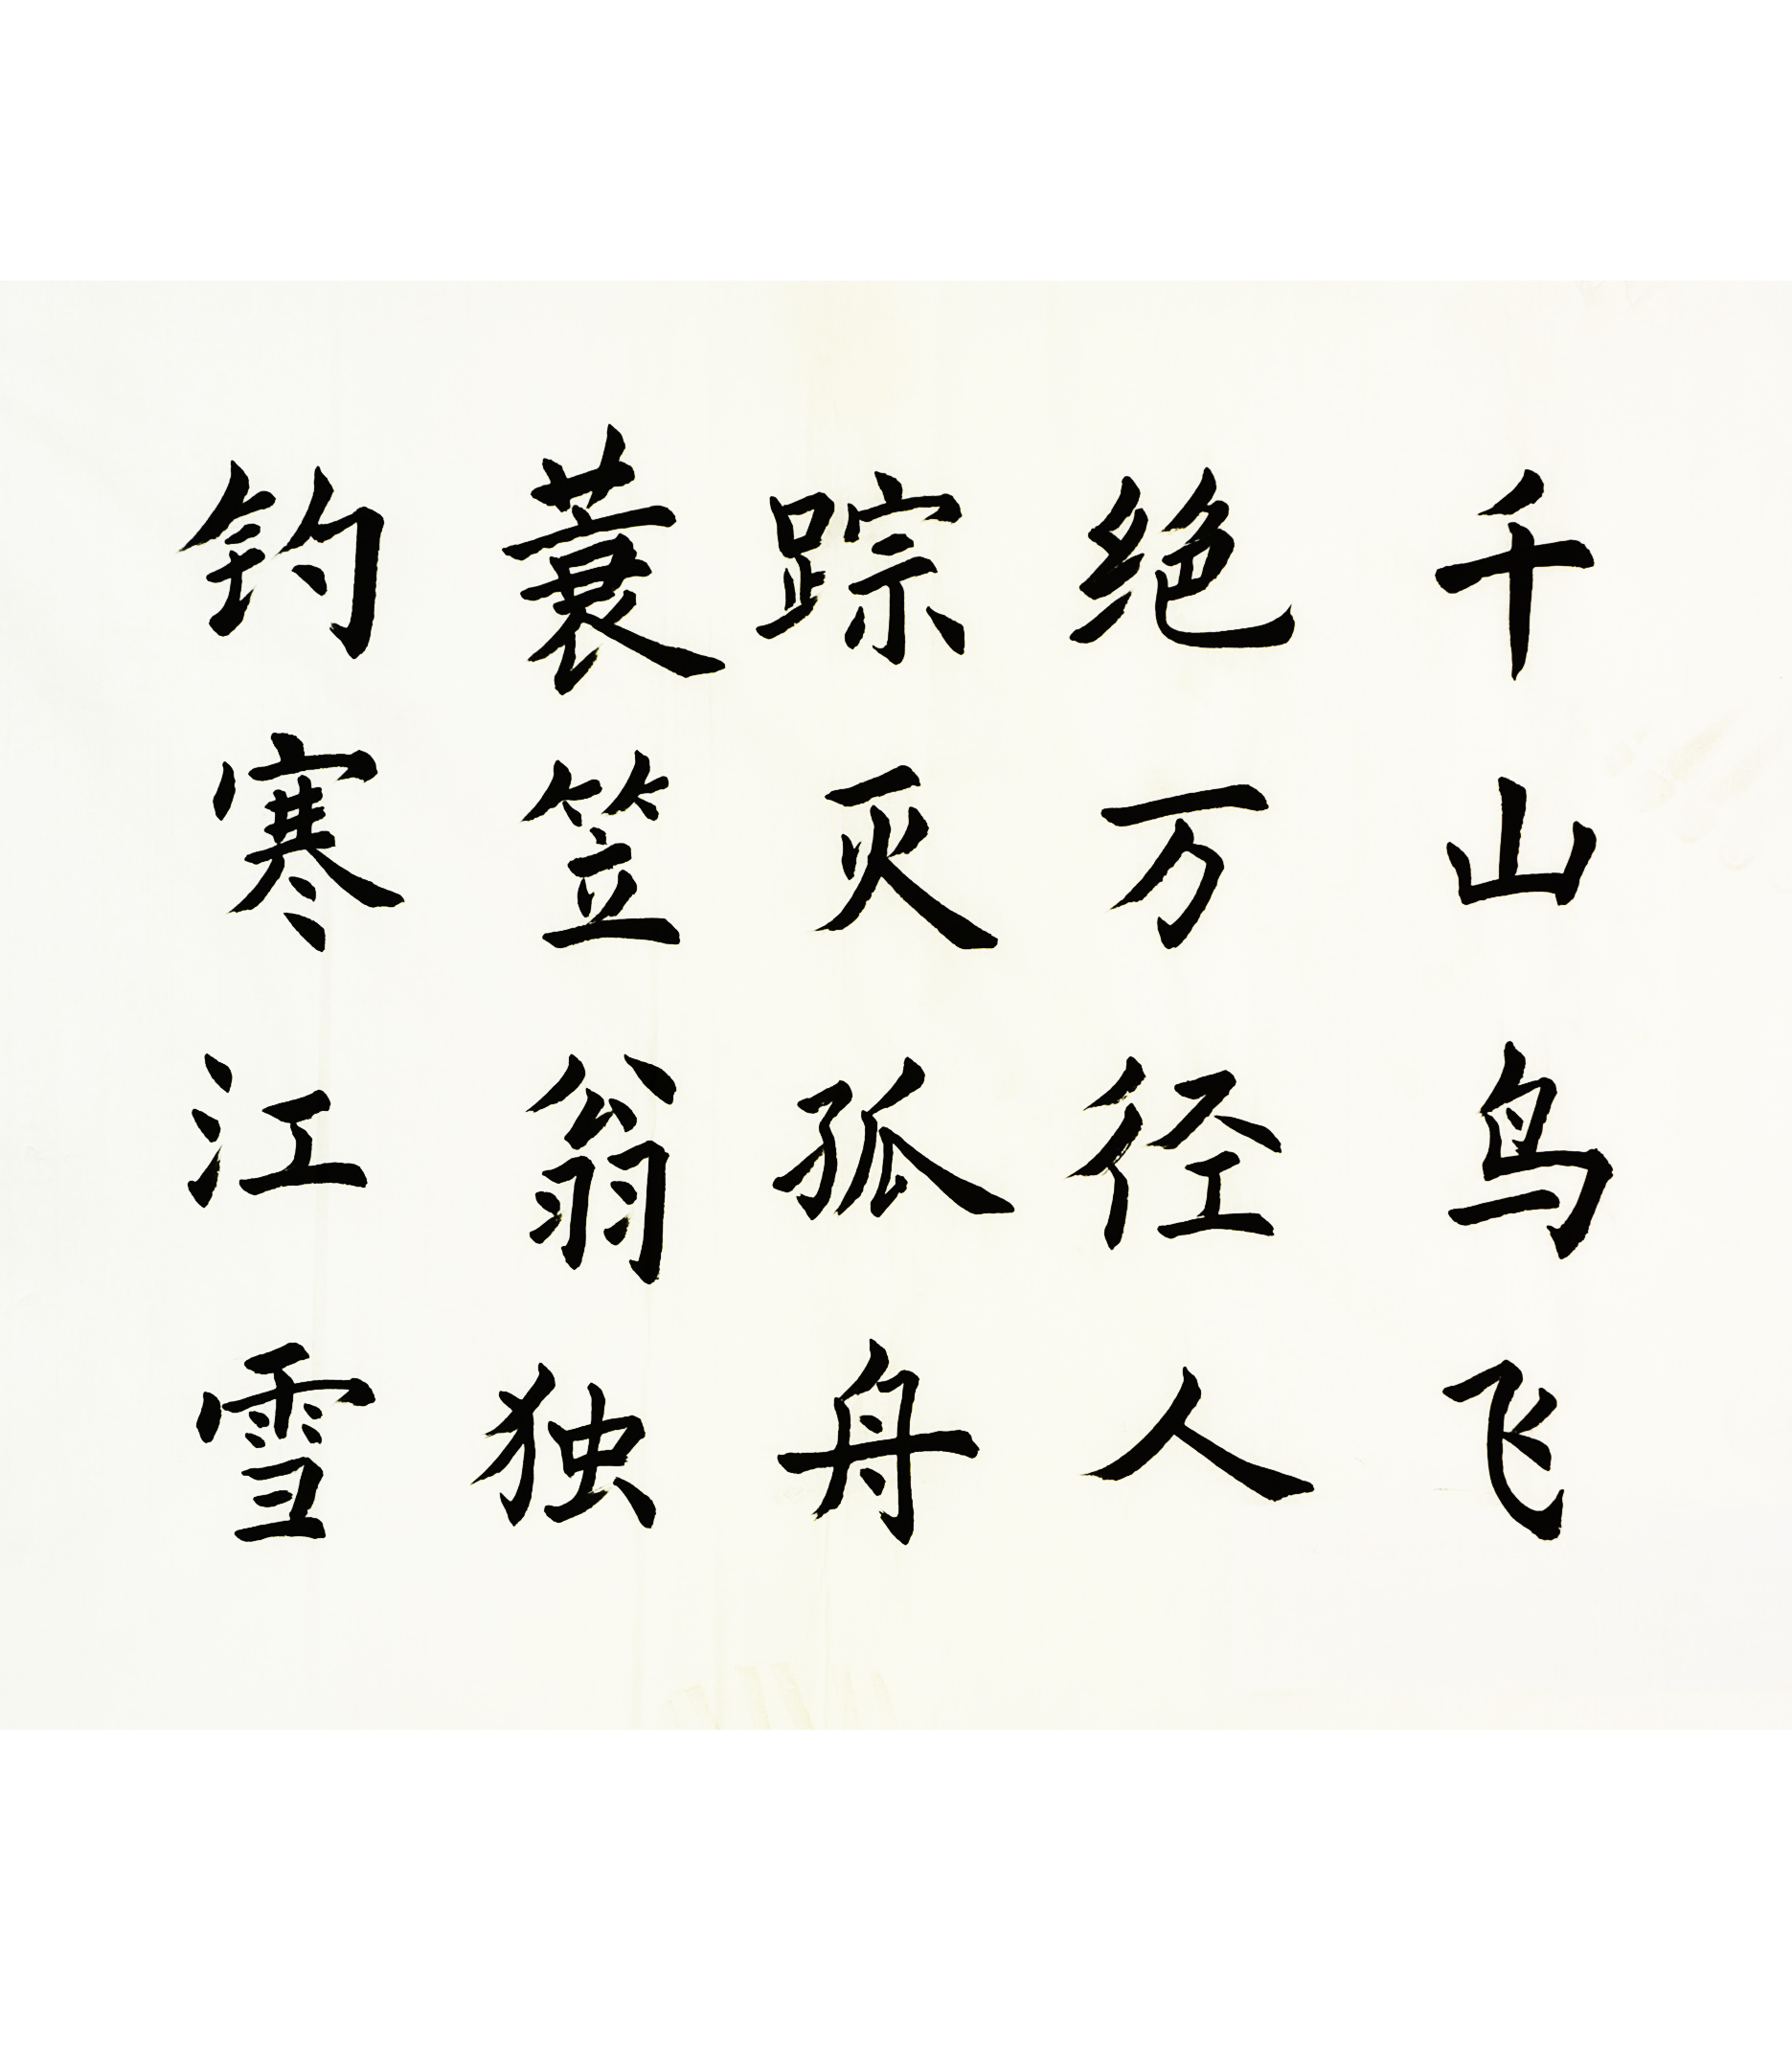 千山鸟飞
绝万径人
踪灭孤舟
蓑笠翁独
钓寒江雪